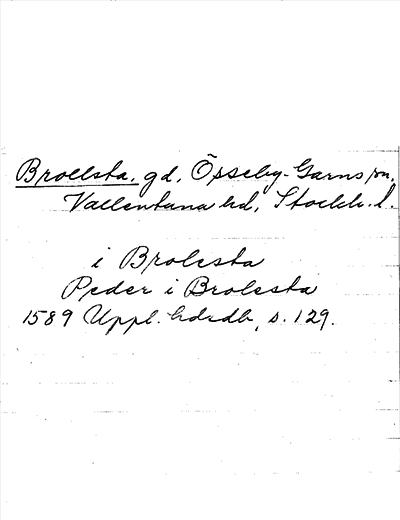 Brollsta, gd, Össeby-Garns sn,
Vallentuna hd, Stockh. l.
i Brolesta
Peder i Brolesta
1589 Uppl. hdrdb, s. 129.